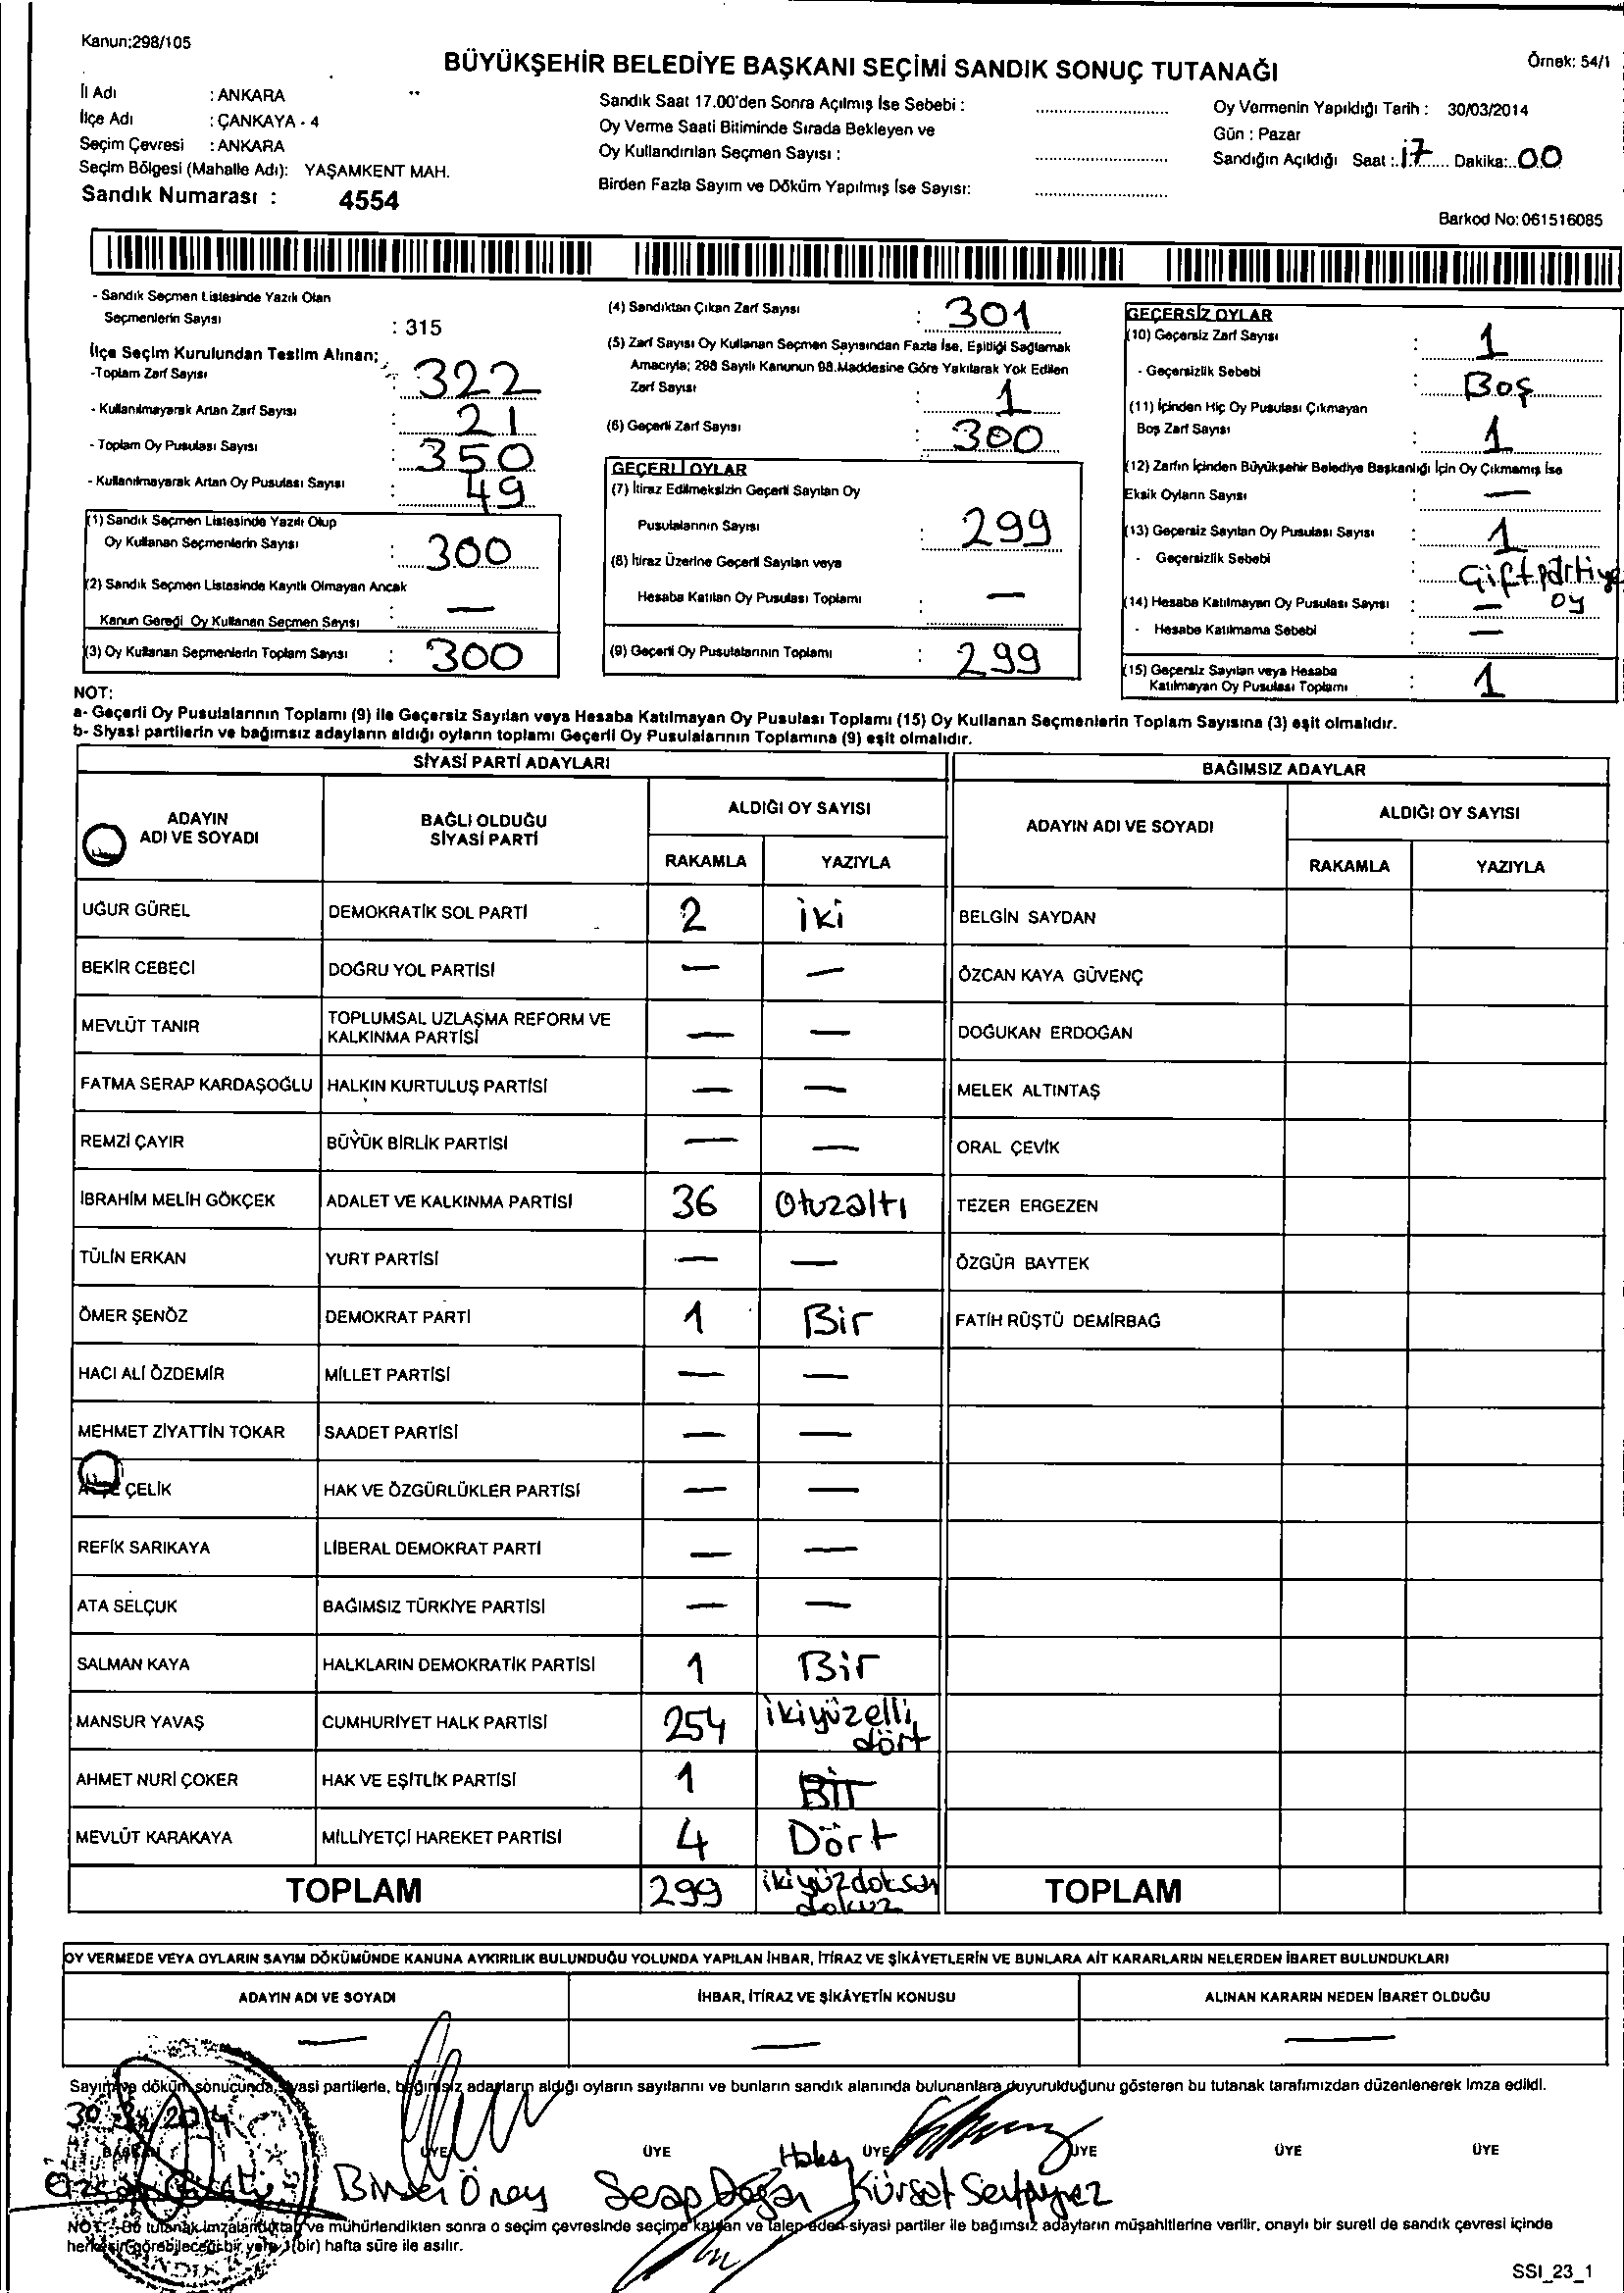 Kanun:298/105
BÜYÜKŞEHİR BELEDİYE BAŞKANI SEÇİMİ SANDIK SONUÇ TUTANAĞI
Örnek: 54/1
İl Adı : ANKARA
İlçe Adı : ÇANKAYA - 4
Seçim Çevresi : ANKARA
Seçim Bölgesi (Mahalle Adı): YAŞAMKENT MAH.
Sandık Numarası : 4554
Sandık Saat 17.00'den Sonra Açılmış İse Sebebi :
Oy Verme Saati Bitiminde Sırada Bekleyen ve
Oy Kullandırılan Seçmen Sayısı :
Birden Fazla Sayım ve Döküm Yapılmış İse Sayısı:
Oy Vermenin Yapıldığı Tarih : 30/03/2014
Gün : Pazar
Sandığın Açıldığı Saat : 17 Dakika: 00
Barkod No: 061516085
- Sandık Seçmen Listesinde Yazılı Olan
Seçmenlerin Sayısı : 315
İlçe Seçim Kurulundan Teslim Alınan;
-Toplam Zarf Sayısı : 322
- Kullanılmayarak Artan Zarf Sayısı : 21
- Toplam Oy Pusulası Sayısı : 350
- Kullanılmayarak Artan Oy Pusulası Sayısı : 49
(1) Sandık Seçmen Listesinde Yazılı Olup
Oy Kullanan Seçmenlerin Sayısı : 300
(2) Sandık Seçmen Listesinde Kayıtlı Olmayan Ancak
Kanun Gereği Oy Kullanan Seçmen Sayısı : —
(3) Oy Kullanan Seçmenlerin Toplam Sayısı : 300
(4) Sandıktan Çıkan Zarf Sayısı : 301
(5) Zarf Sayısı Oy Kullanan Seçmen Sayısından Fazla İse, Eşitliği Sağlamak
Amacıyla; 298 Sayılı Kanunun 98.Maddesine Göre Yakılarak Yok Edilen
Zarf Sayısı : 1
(6) Geçerli Zarf Sayısı : 300
GEÇERLİ OYLAR
(7) İtiraz Edilmeksizin Geçerli Sayılan Oy
Pusulalarının Sayısı : 299
(8) İtiraz Üzerine Geçerli Sayılan veya
Hesaba Katılan Oy Pusulası Toplamı : —
(9) Geçerli Oy Pusulalarının Toplamı : 299
GEÇERSİZ OYLAR
(10) Geçersiz Zarf Sayısı : 1
- Geçersizlik Sebebi : Boş
(11) İçinden Hiç Oy Pusulası Çıkmayan
Boş Zarf Sayısı : 1
(12) Zarfın İçinden Büyükşehir Belediye Başkanlığı İçin Oy Çıkmamış İse
Eksik Oyların Sayısı : —
(13) Geçersiz Sayılan Oy Pusulası Sayısı : 1
- Geçersizlik Sebebi : Çift partiye
oy
(14) Hesaba Katılmayan Oy Pusulası Sayısı : —
- Hesaba Katılmama Sebebi : —
(15) Geçersiz Sayılan veya Hesaba
Katılmayan Oy Pusulası Toplamı : 1
NOT:
a- Geçerli Oy Pusulalarının Toplamı (9) ile Geçersiz Sayılan veya Hesaba Katılmayan Oy Pusulası Toplamı (15) Oy Kullanan Seçmenlerin Toplam Sayısına (3) eşit olmalıdır.
b- Siyasi partilerin ve bağımsız adayların aldığı oyların toplamı Geçerli Oy Pusulalarının Toplamına (9) eşit olmalıdır.
SİYASİ PARTİ ADAYLARI
BAĞIMSIZ ADAYLAR
ADAYIN ADI VE SOYADI
BAĞLI OLDUĞU SİYASİ PARTİ
ALDIĞI OY SAYISI
RAKAMLA YAZIYLA
ADAYIN ADI VE SOYADI
ALDIĞI OY SAYISI
RAKAMLA YAZIYLA
UĞUR GÜREL DEMOKRATİK SOL PARTİ 2 iki BELGİN SAYDAN
BEKİR CEBECİ DOĞRU YOL PARTİSİ — — ÖZCAN KAYA GÜVENÇ
MEVLÜT TANIR TOPLUMSAL UZLAŞMA REFORM VE KALKINMA PARTİSİ — — DOĞUKAN ERDOĞAN
FATMA SERAP KARDAŞOĞLU HALKIN KURTULUŞ PARTİSİ — — MELEK ALTINTAŞ
REMZİ ÇAYIR BÜYÜK BİRLİK PARTİSİ — — ORAL ÇEVİK
İBRAHİM MELİH GÖKÇEK ADALET VE KALKINMA PARTİSİ 36 Otuzaltı TEZER ERGEZEN
TÜLİN ERKAN YURT PARTİSİ — — ÖZGÜR BAYTEK
ÖMER ŞENÖZ DEMOKRAT PARTİ 1 Bir FATİH RÜŞTÜ DEMİRBAĞ
HACI ALİ ÖZDEMİR MİLLET PARTİSİ — —
MEHMET ZİYATTİN TOKAR SAADET PARTİSİ — —
ÇELİK HAK VE ÖZGÜRLÜKLER PARTİSİ — —
REFİK SARIKAYA LİBERAL DEMOKRAT PARTİ — —
ATA SELÇUK BAĞIMSIZ TÜRKİYE PARTİSİ — —
SALMAN KAYA HALKLARIN DEMOKRATİK PARTİSİ 1 Bir
MANSUR YAVAŞ CUMHURİYET HALK PARTİSİ 254 ikiyüzelli dört
AHMET NURİ ÇOKER HAK VE EŞİTLİK PARTİSİ 1 Bir
MEVLÜT KARAKAYA MİLLİYETÇİ HAREKET PARTİSİ 4 Dört
TOPLAM 299 ikiyüzdoksan dokuz TOPLAM
OY VERMEDE VEYA OYLARIN SAYIM DÖKÜMÜNDE KANUNA AYKIRILIK BULUNDUĞU YOLUNDA YAPILAN İHBAR, İTİRAZ VE ŞİKÂYETLERİN VE BUNLARA AİT KARARLARIN NELERDEN İBARET BULUNDUKLARI
ADAYIN ADI VE SOYADI İHBAR, İTİRAZ VE ŞİKÂYETİN KONUSU ALINAN KARARIN NEDEN İBARET OLDUĞU
— — —
Sayım ve döküm sonucunda, siyasi partilerle, bağımsız adayların aldığı oyların sayılarını ve bunların sandık alanında bulunanlara duyurulduğunu gösteren bu tutanak tarafımızdan düzenlenerek imza edildi.
BAŞKAN ÜYE ÜYE ÜYE ÜYE ÜYE ÜYE
Öney Serap Doğan Kürşat
NOT: -Bu tutanak imzalandıktan ve mühürlendikten sonra o seçim çevresinde seçime katılan ve talep eden siyasi partiler ile bağımsız adayların müşahitlerine verilir, onaylı bir sureti de sandık çevresi içinde
herkesin görebileceği bir yere 1(bir) hafta süre ile asılır.
SSI_23_1